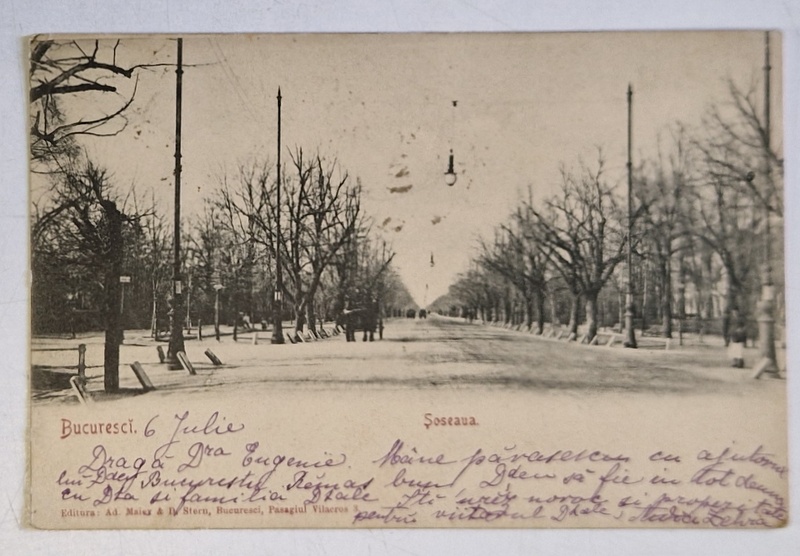 Bucurescĭ. 6 Julie
Șoseaua.
Dragă Dra Eugenie. Mâne părăsescu cu ajutorul
lui Ddeu Bucurestiu. Rĕmas bun Ddeu să fie in tot deauna
cu Dta si familia Dtale Iti urez noroc si
pentru viitorul Dtale.
Editura: Ad. Maier & D. Stern, Bucuresci, Pasagiul Vilacros 3.